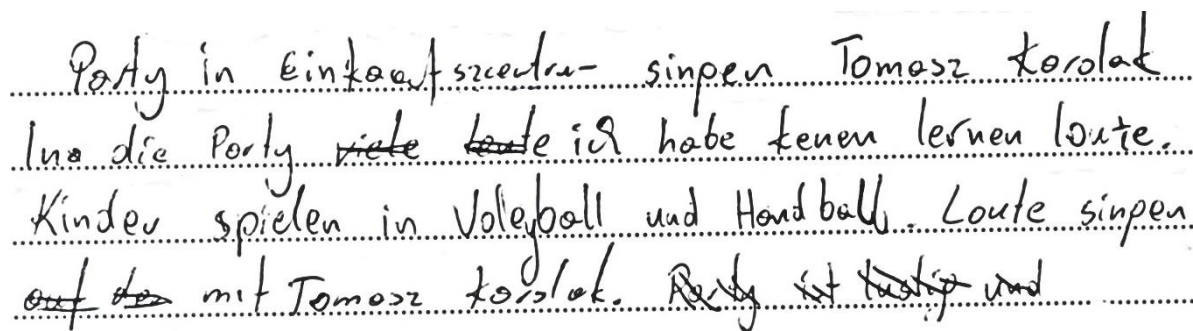 Party in Einkaufszcentru- singen Tomasz Karolak
Ina die Party viele Leute ich habe kenen lernen loute.
Kinder spielen in Voleyball und Handball. Loute singen
auf das mit Tomasz Karolak. Party ist lustig und